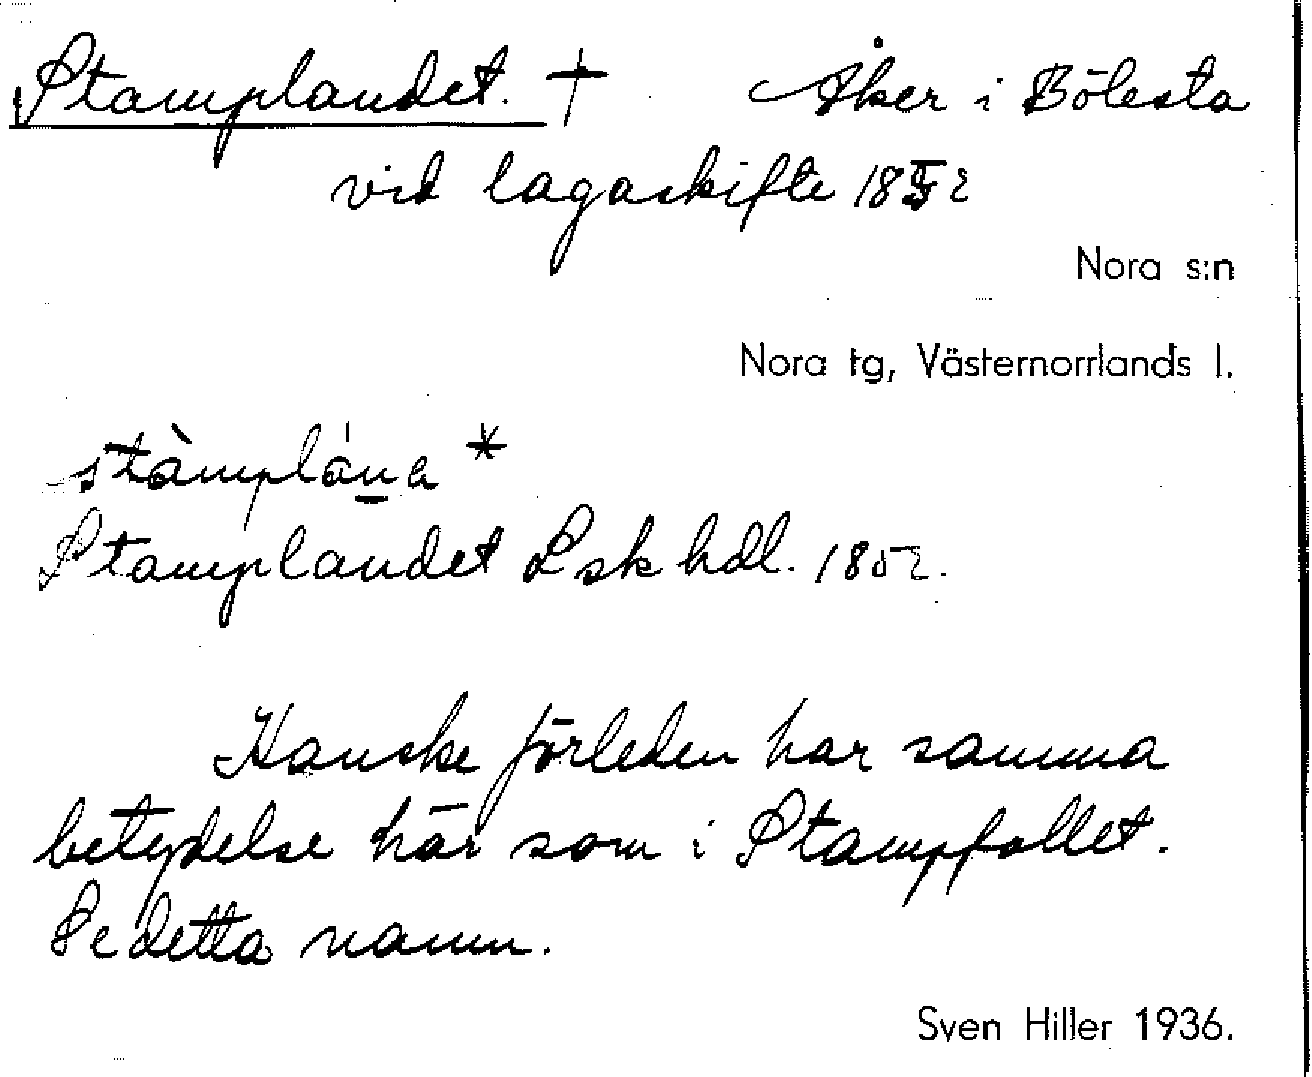 Stamplandet. † Åker i Bölesta
vid lagaskifte 1852
Nora s:n
Nora tg, Västernorrlands l.
stàmplána *
Stamplandet Lsk hdl. 1852.
Kanske förleden har samma
betydelse här som i Stampfallet.
Se detta namn.
Sven Hiller 1936.